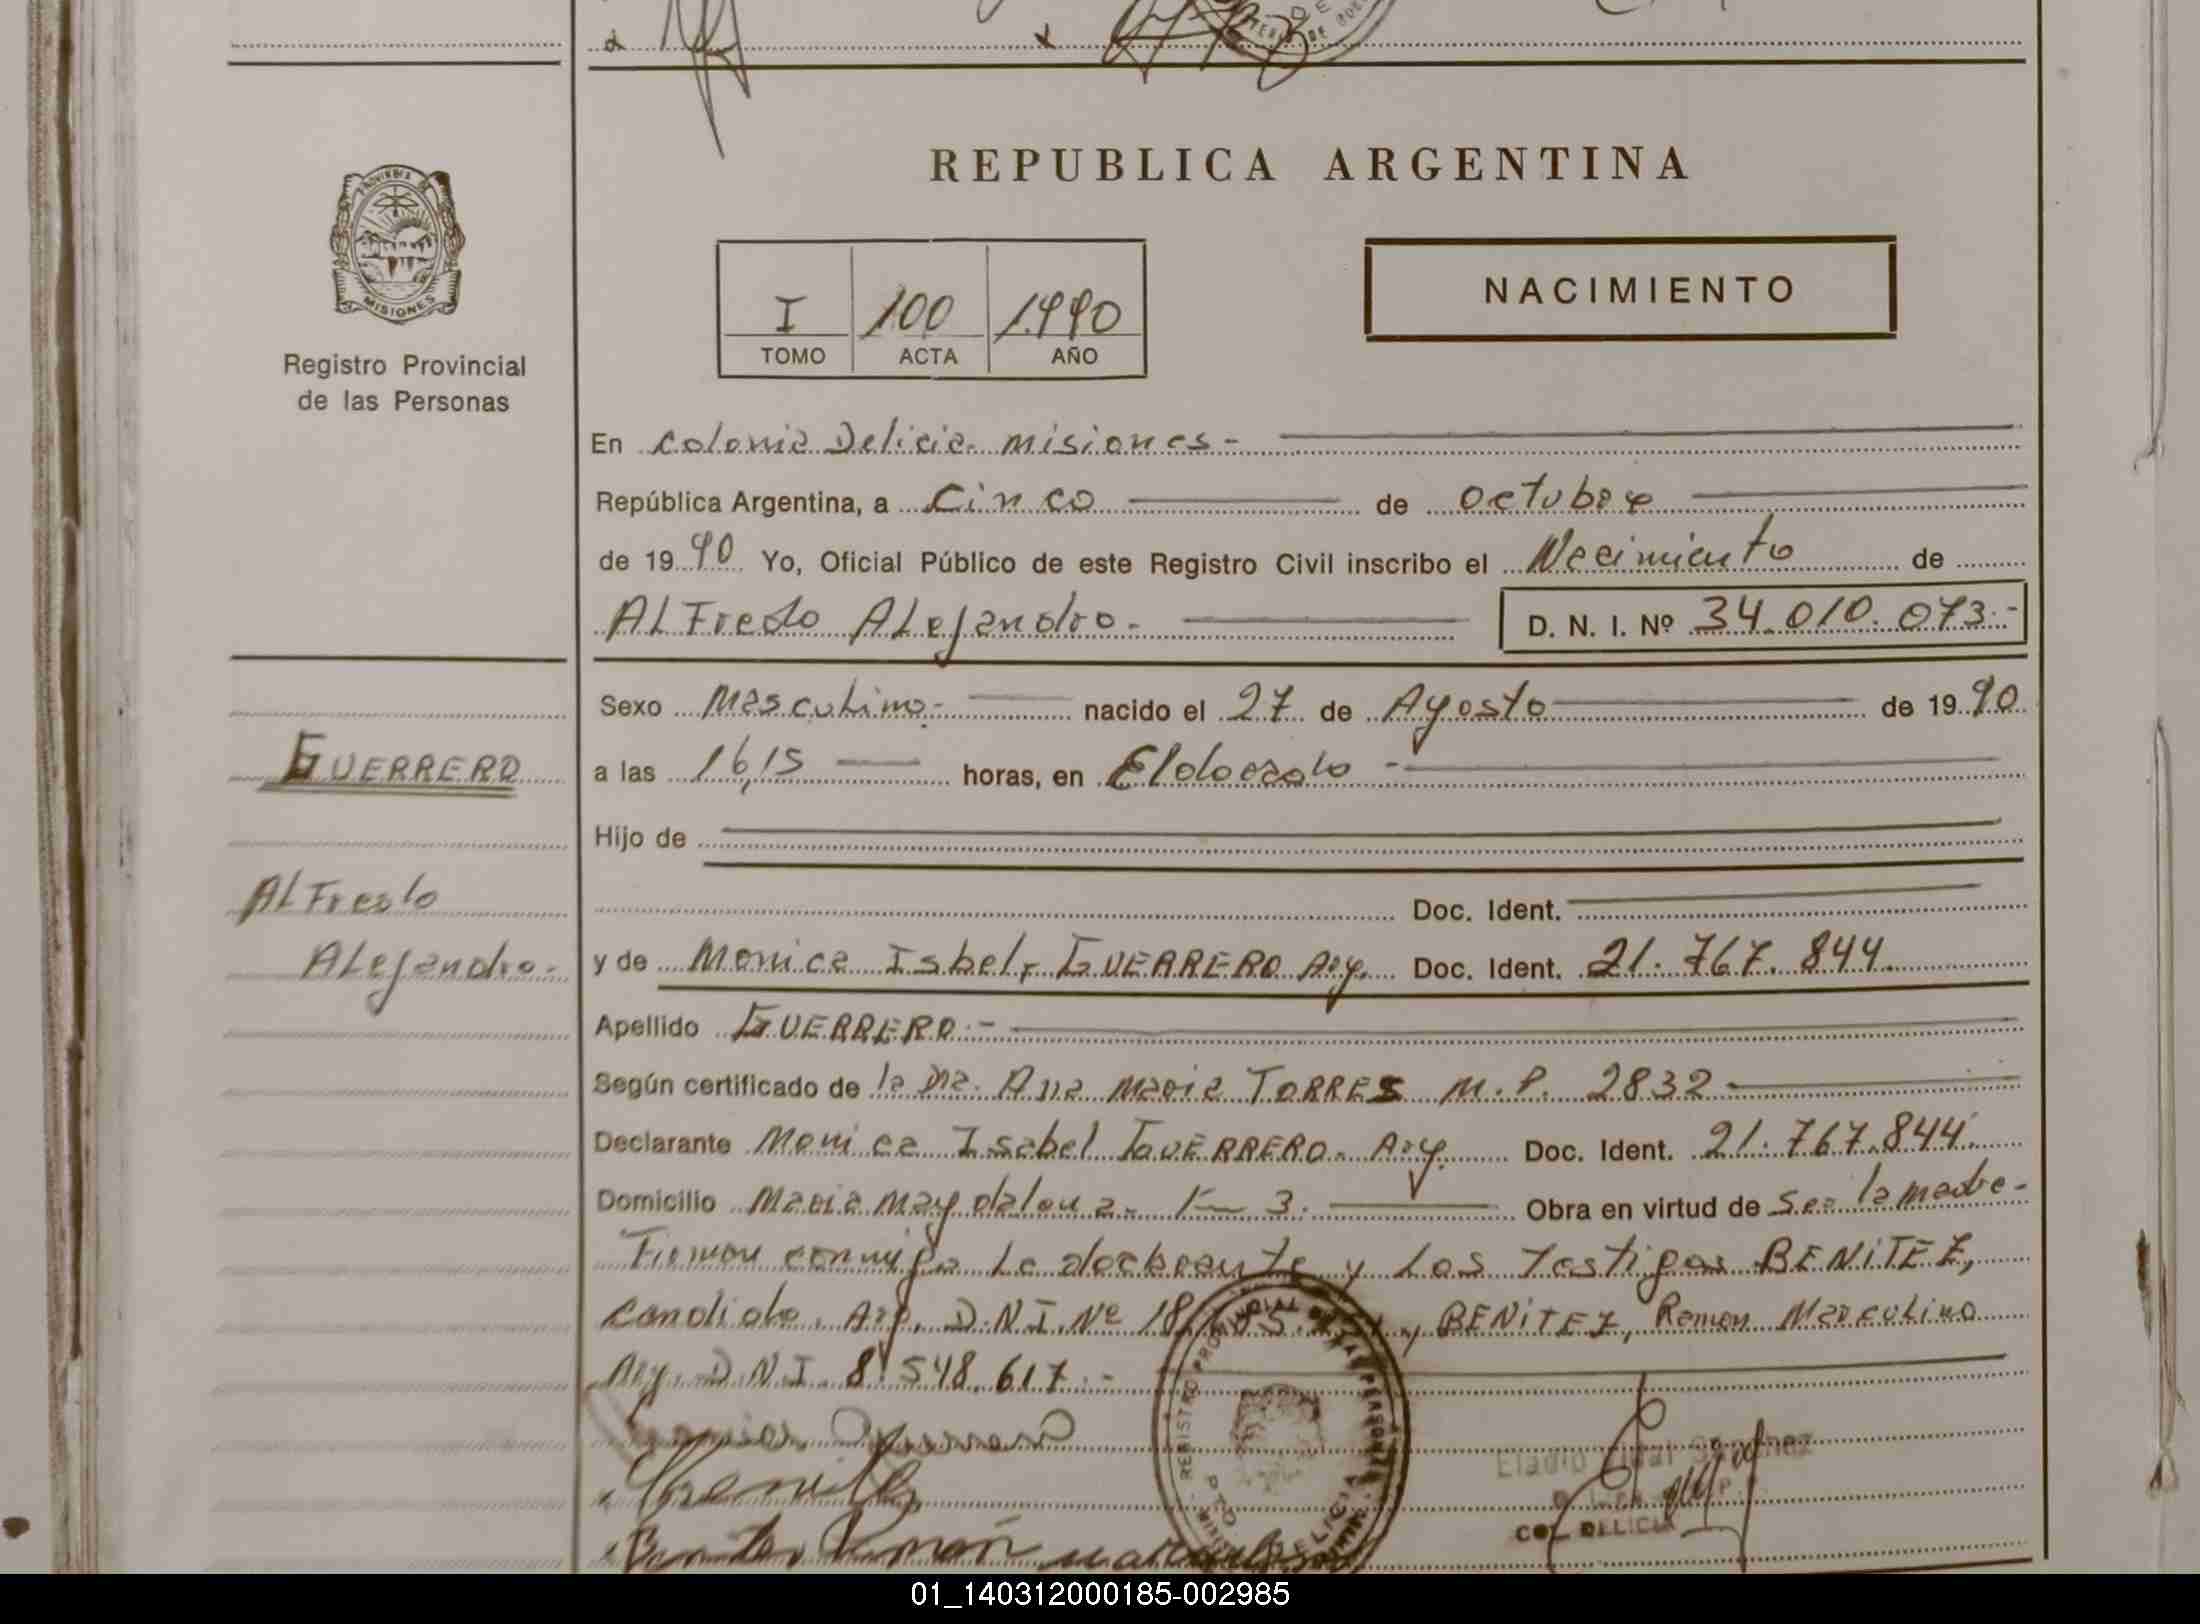 REPUBLICA ARGENTINA
PROVINCIA DE
MISIONES
Registro Provincial
de las Personas
I 100 1.990
TOMO ACTA AÑO
NACIMIENTO
En Colonia Delicia - Misiones -
República Argentina, a Cinco de octubre
de 1990 Yo, Oficial Público de este Registro Civil inscribo el Nacimiento de
ALFredo ALejandro.- D. N. I. Nº 34.010.073.-
Sexo Masculino.- nacido el 27 de Agosto de 1990
GUERRERO
a las 16,15 horas, en Eldorado -
Hijo de
ALFredo
Doc. Ident.
ALejandro.-
y de Monica Isbel, GUERRERO Arg. Doc. Ident. 21.767.844.
Apellido GUERRERO.-
Según certificado de la Dra. Ana Maria TORRES M.P. 2832
Declarante Monica Isabel GUERRERO. Arg. Doc. Ident. 21.767.844.
Domicilio Maria Magdalena. Km 3. Obra en virtud de Ser la madre.-
Firman conmigo la declarante y Los Testigos BENITEZ,
Candido. Arg. D.N.I. Nº 18. y BENITEZ, Ramon Marculino
Arg. D.N.I. 8.548.617.-
Eladio Vidal Sanchez
COL. DELICIA
01_140312000185-002985